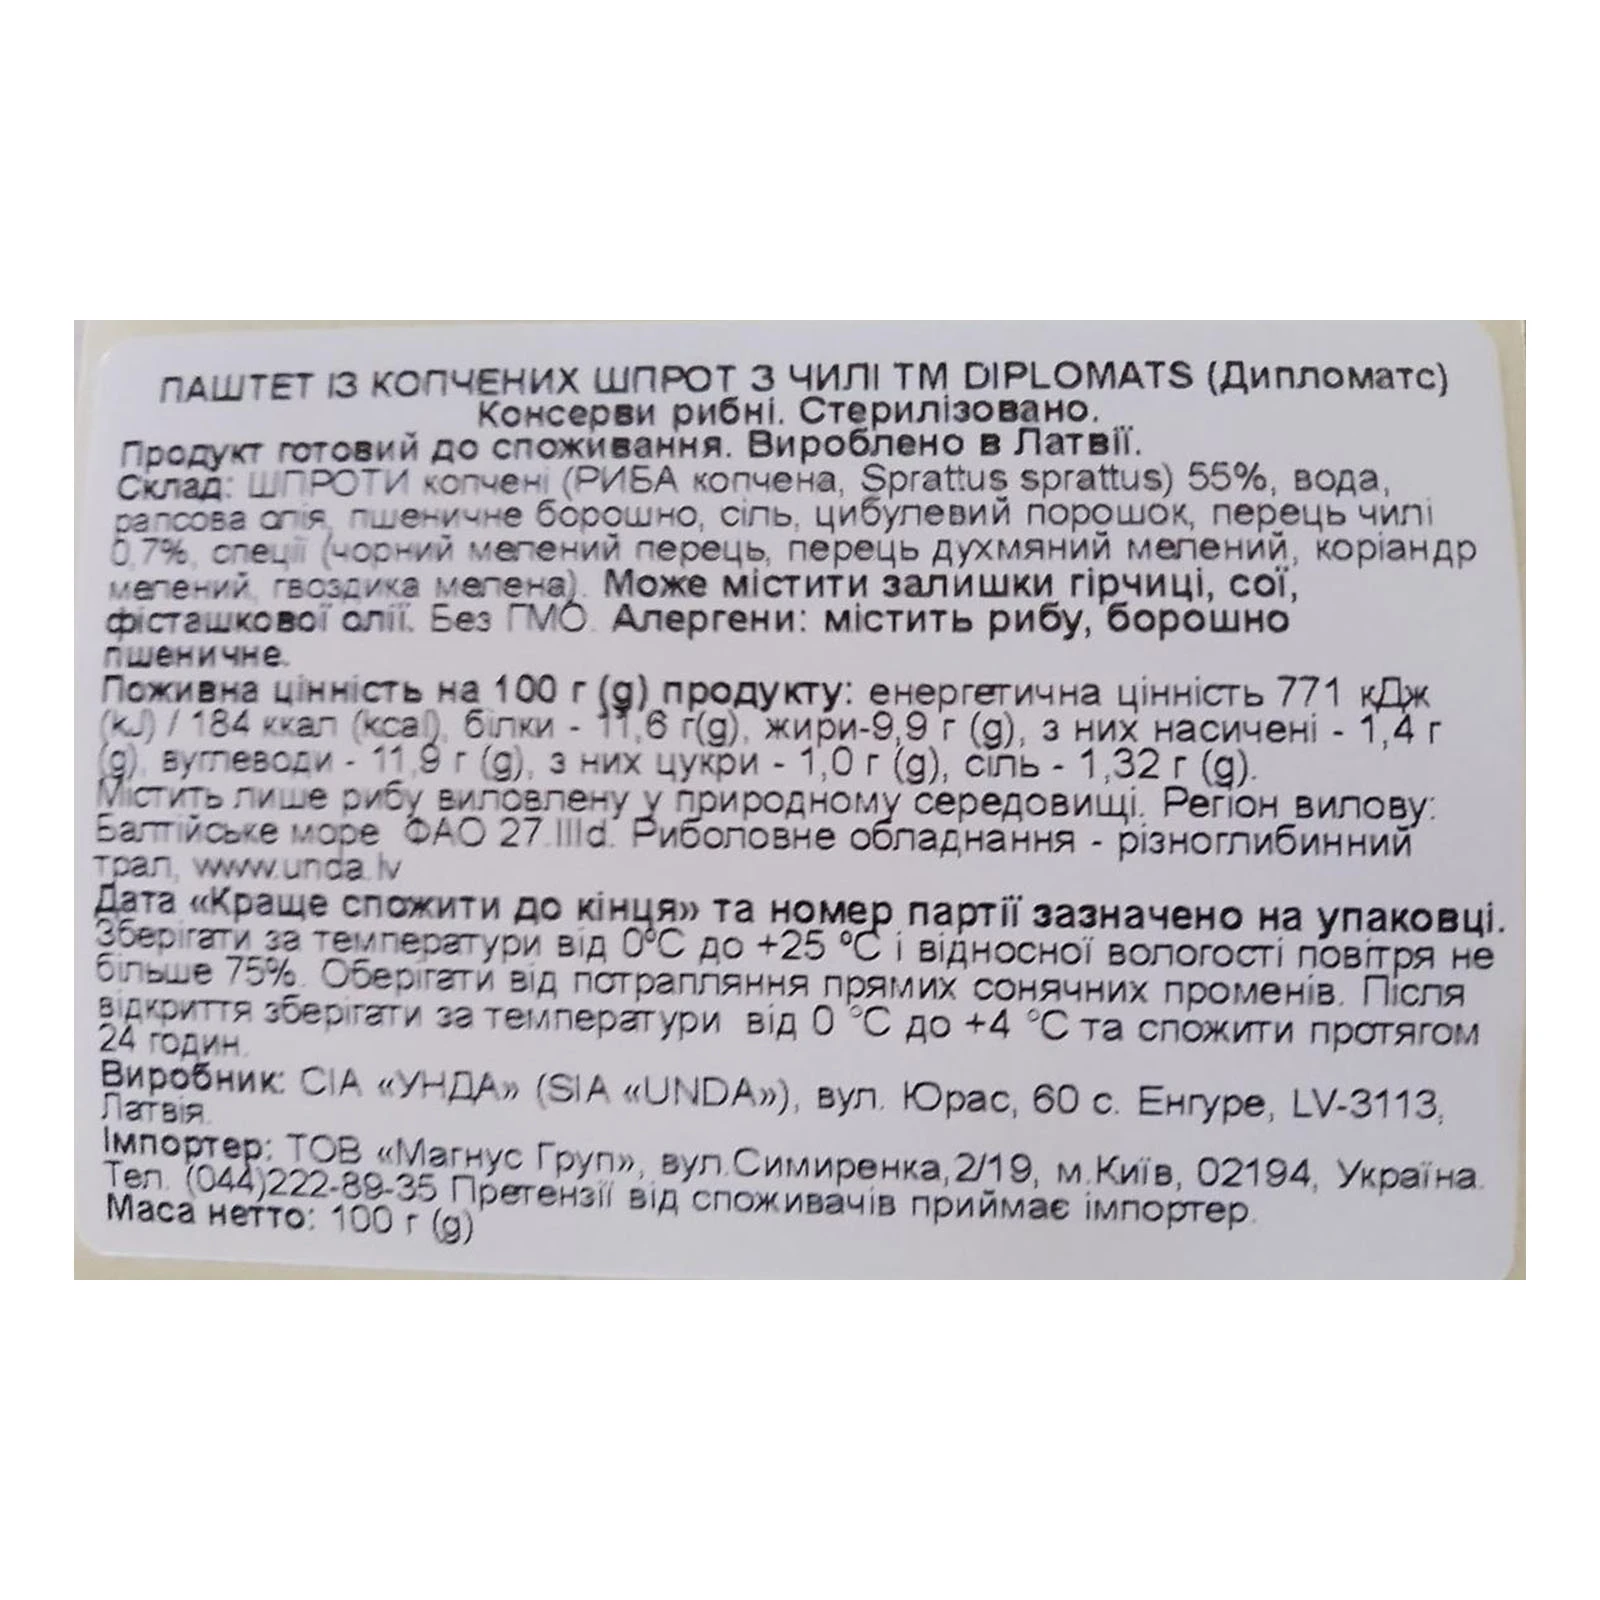 ПАШТЕТ ІЗ КОПЧЕНИХ ШПРОТ З ЧИЛІ ТМ DIPLOMATS (Дипломатс)
Консерви рибні. Стерилізовано.
Продукт готовий до споживання. Вироблено в Латвії.
Склад: ШПРОТИ копчені (РИБА копчена, Sprattus sprattus) 55%, вода,
рапсова олія, пшеничне борошно, сіль, цибулевий порошок, перець чилі
0,7%, спеції (чорний мелений перець, перець духмяний мелений, коріандр
мелений, гвоздика мелена). Може містити залишки гірчиці, сої,
фісташкової олії. Без ГМО. Алергени: містить рибу, борошно
пшеничне.
Поживна цінність на 100 г (g) продукту: енергетична цінність 771 кДж
(kJ) / 184 ккал (kcal), білки - 11,6 г(g), жири-9,9 г (g), з них насичені - 1,4 г
(g), вуглеводи - 11,9 г (g), з них цукри - 1,0 г (g), сіль - 1,32 г (g).
Містить лише рибу виловлену у природному середовищі. Регіон вилову:
Балтійське море ФАО 27.IIId. Риболовне обладнання - різноглибинний
трал, www.unda.lv
Дата «Краще спожити до кінця» та номер партії зазначено на упаковці.
Зберігати за температури від 0°С до +25 °С і відносної вологості повітря не
більше 75%. Оберігати від потрапляння прямих сонячних променів. Після
відкриття зберігати за температури від 0 °С до +4 °С та спожити протягом
24 годин.
Виробник: СІА «УНДА» (SIA «UNDA»), вул. Юрас, 60 с. Енгуре, LV-3113,
Латвія.
Імпортер: ТОВ «Магнус Груп», вул.Симиренка,2/19, м.Київ, 02194, Україна.
Тел. (044)222-89-35 Претензії від споживачів приймає імпортер.
Маса нетто: 100 г (g)